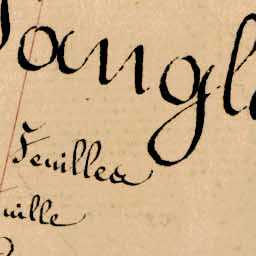 Sangl
Feuilles
uille